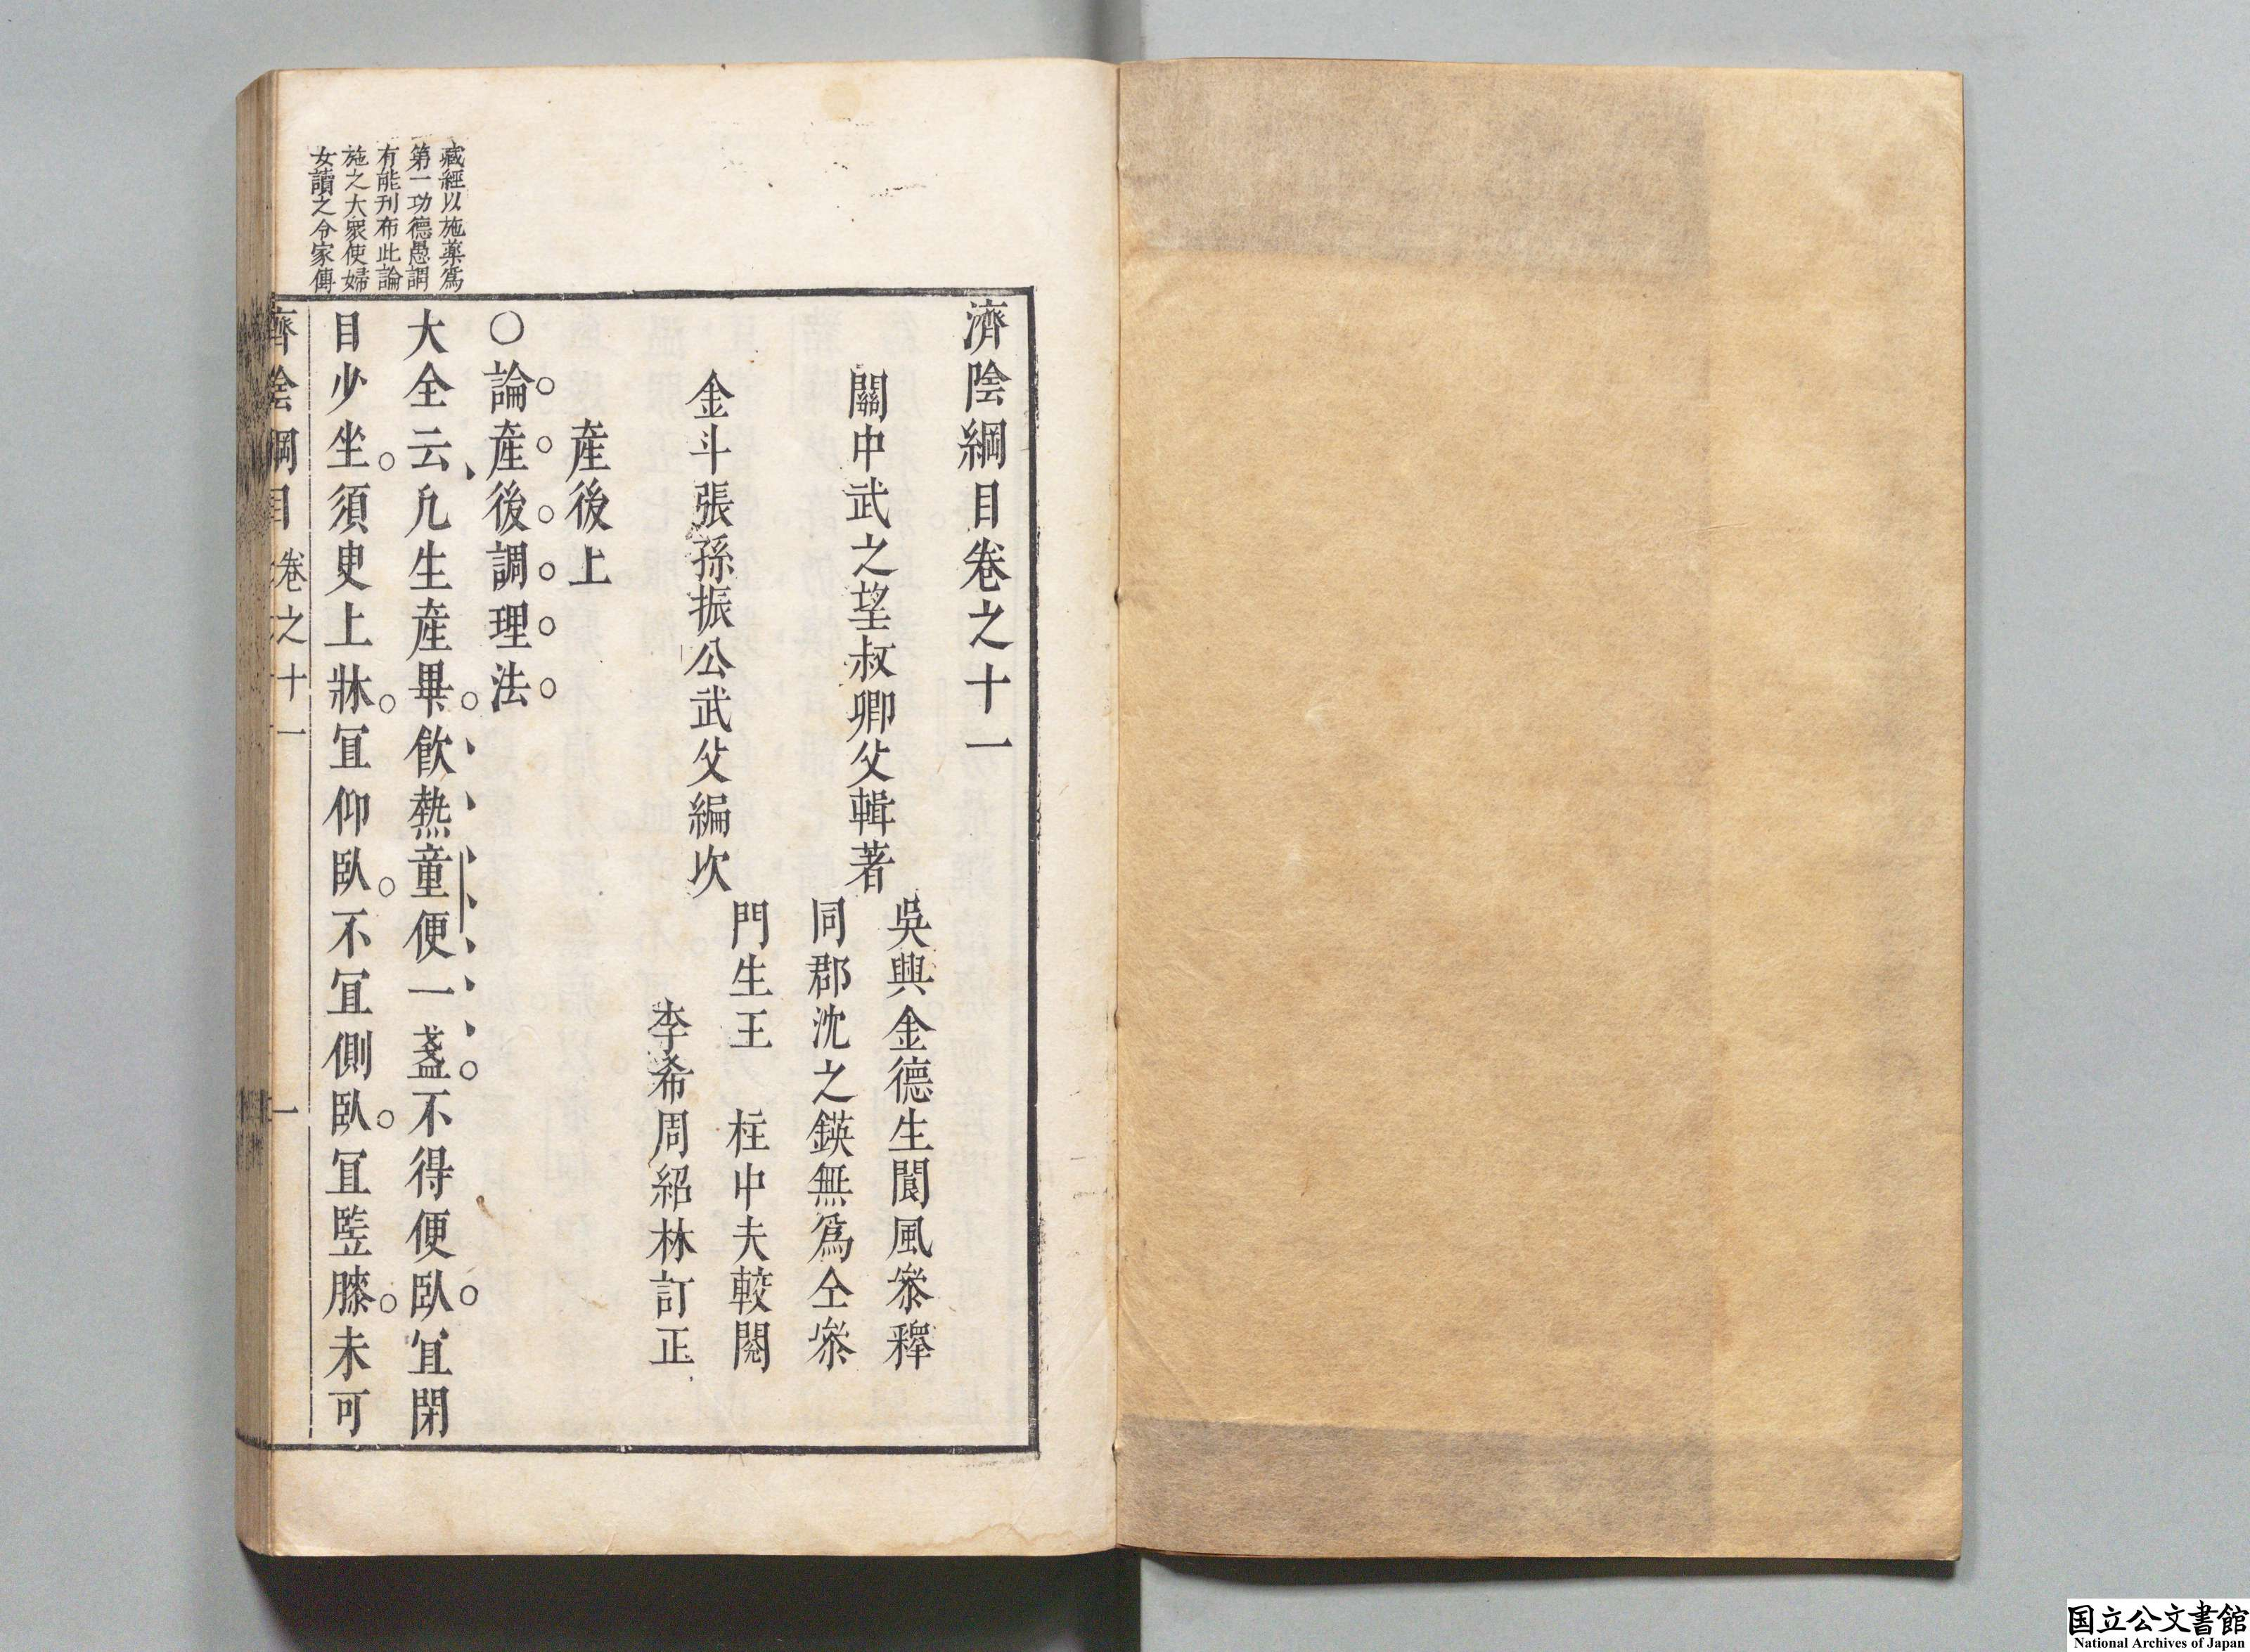 濟陰綱目卷之十一
關中武之望叔卿父輯著
吳興金德生閬風叅釋
同郡沈之鍈無爲仝叅
金斗張孫振公武父編次
門生王　枉中夫較閱
李希周紹林訂正
產後上
○論產後調理法
大全云凡生產畢飲熱童便一盞不得便臥宜閉
目少坐須臾上牀宜仰臥不宜側臥宜竪膝未可
藏經以施藥爲
第一功德愚謂
有能刋布此論
施之大衆使婦
女讀之令家傳
濟陰綱目　卷之十一　一
国立公文書館
National Archives of Japan